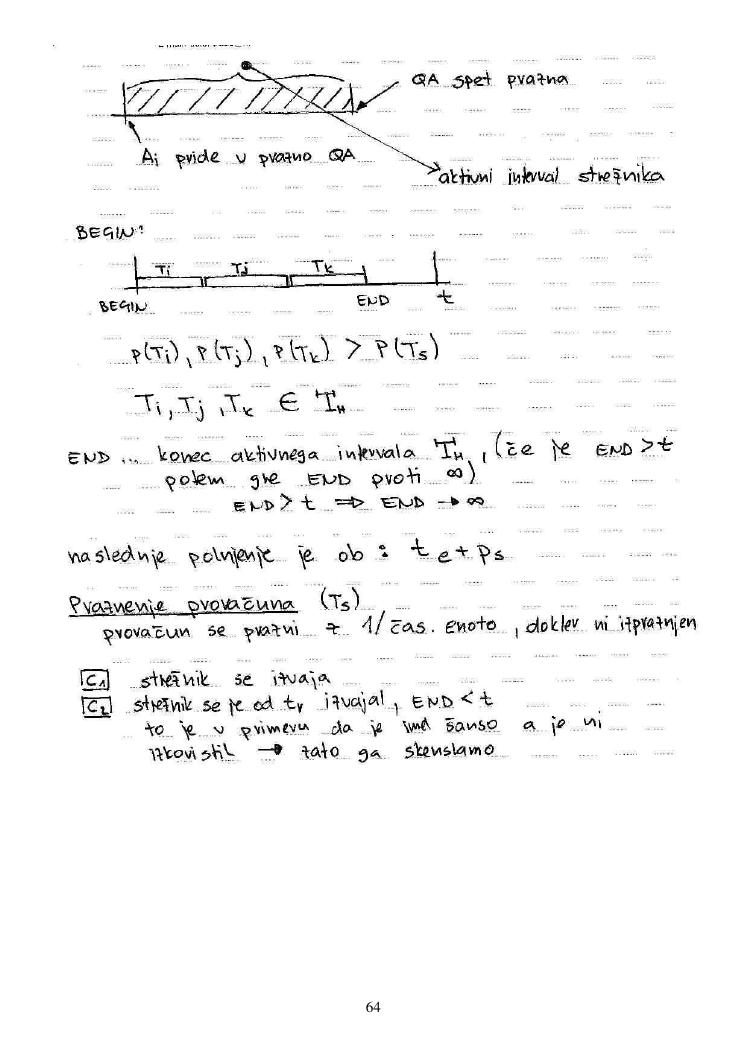 QA spet prazna
Ai pride v prazno QA
aktivni interval strežnika
BEGIN:
Ti Tj Tk
BEGIN END t
p(Ti), p(Tj), p(Tk) > p(Ts)
Ti, Tj, Tk ∈ TH
END ... konec aktivnega intervala TH, (če je END > t
potem gre END proti ∞)
END > t ⇒ END → ∞
naslednje polnjenje je ob : te + ps
Praznenje provačuna (Ts)
provačun se prazni z 1/čas. enoto, dokler ni izpraznjen
C1 strežnik se izvaja
C2 strežnik se je od tr izvajal, END < t
to je v primeru da je imel šanso a je ni
izkoristil → zato ga skenslamo
64